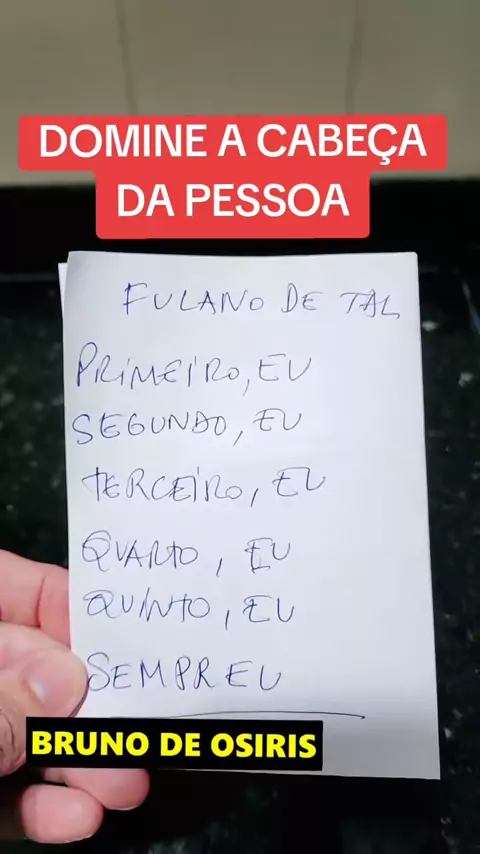 DOMINE A CABEÇA
DA PESSOA
FULANO DE TAL
PRIMEIRO, EU
SEGUNDO, EU
TERCEIRO, EU
QUARTO, EU
QUINTO, EU
SEMPREU
BRUNO DE OSIRIS